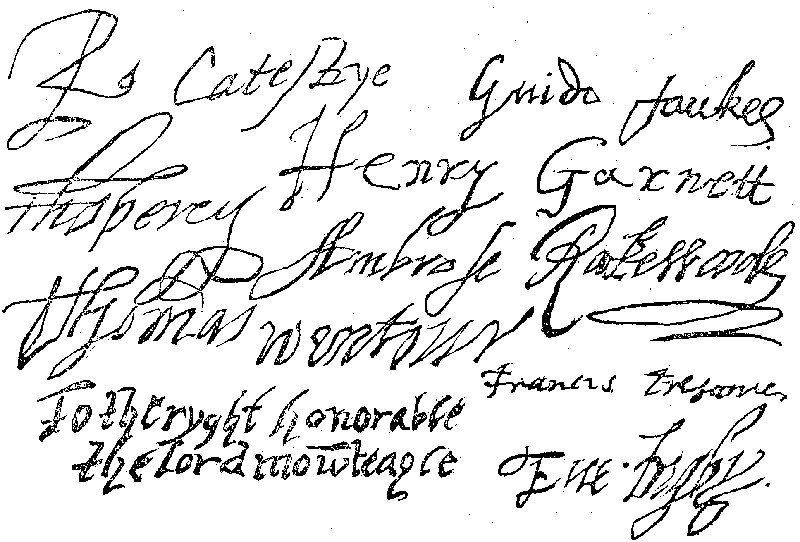 Ro Catesbye
Guido fawkes
Henry Garnett
Tho percy
Ambrose Rookewood
Thomas wentour
Francis Tresame
To the ryght honorable
the lord mowteagle
Eue. Digby.